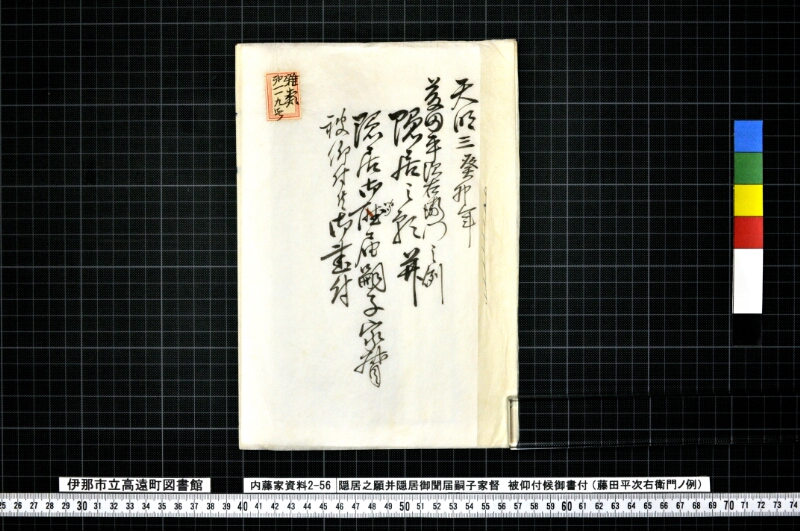 天明三癸卯年
藤田平次右衛門之例
隠居之願并
隠居御聞届嗣子家督
被仰付候御書付
雑券
卯一一九号
伊那市立高遠町図書館
内藤家資料2-56 隠居之願并隠居御聞届嗣子家督 被仰付候御書付（藤田平次右衛門ノ例）
25 26 27 28 29 30 31 32 33 34 35 36 37 38 39 40 41 42 43 44 45 46 47 48 49 50 51 52 53 54 55 56 57 58 59 60 61 62 63 64 65 66 67 68 69 70 71 72 73 74